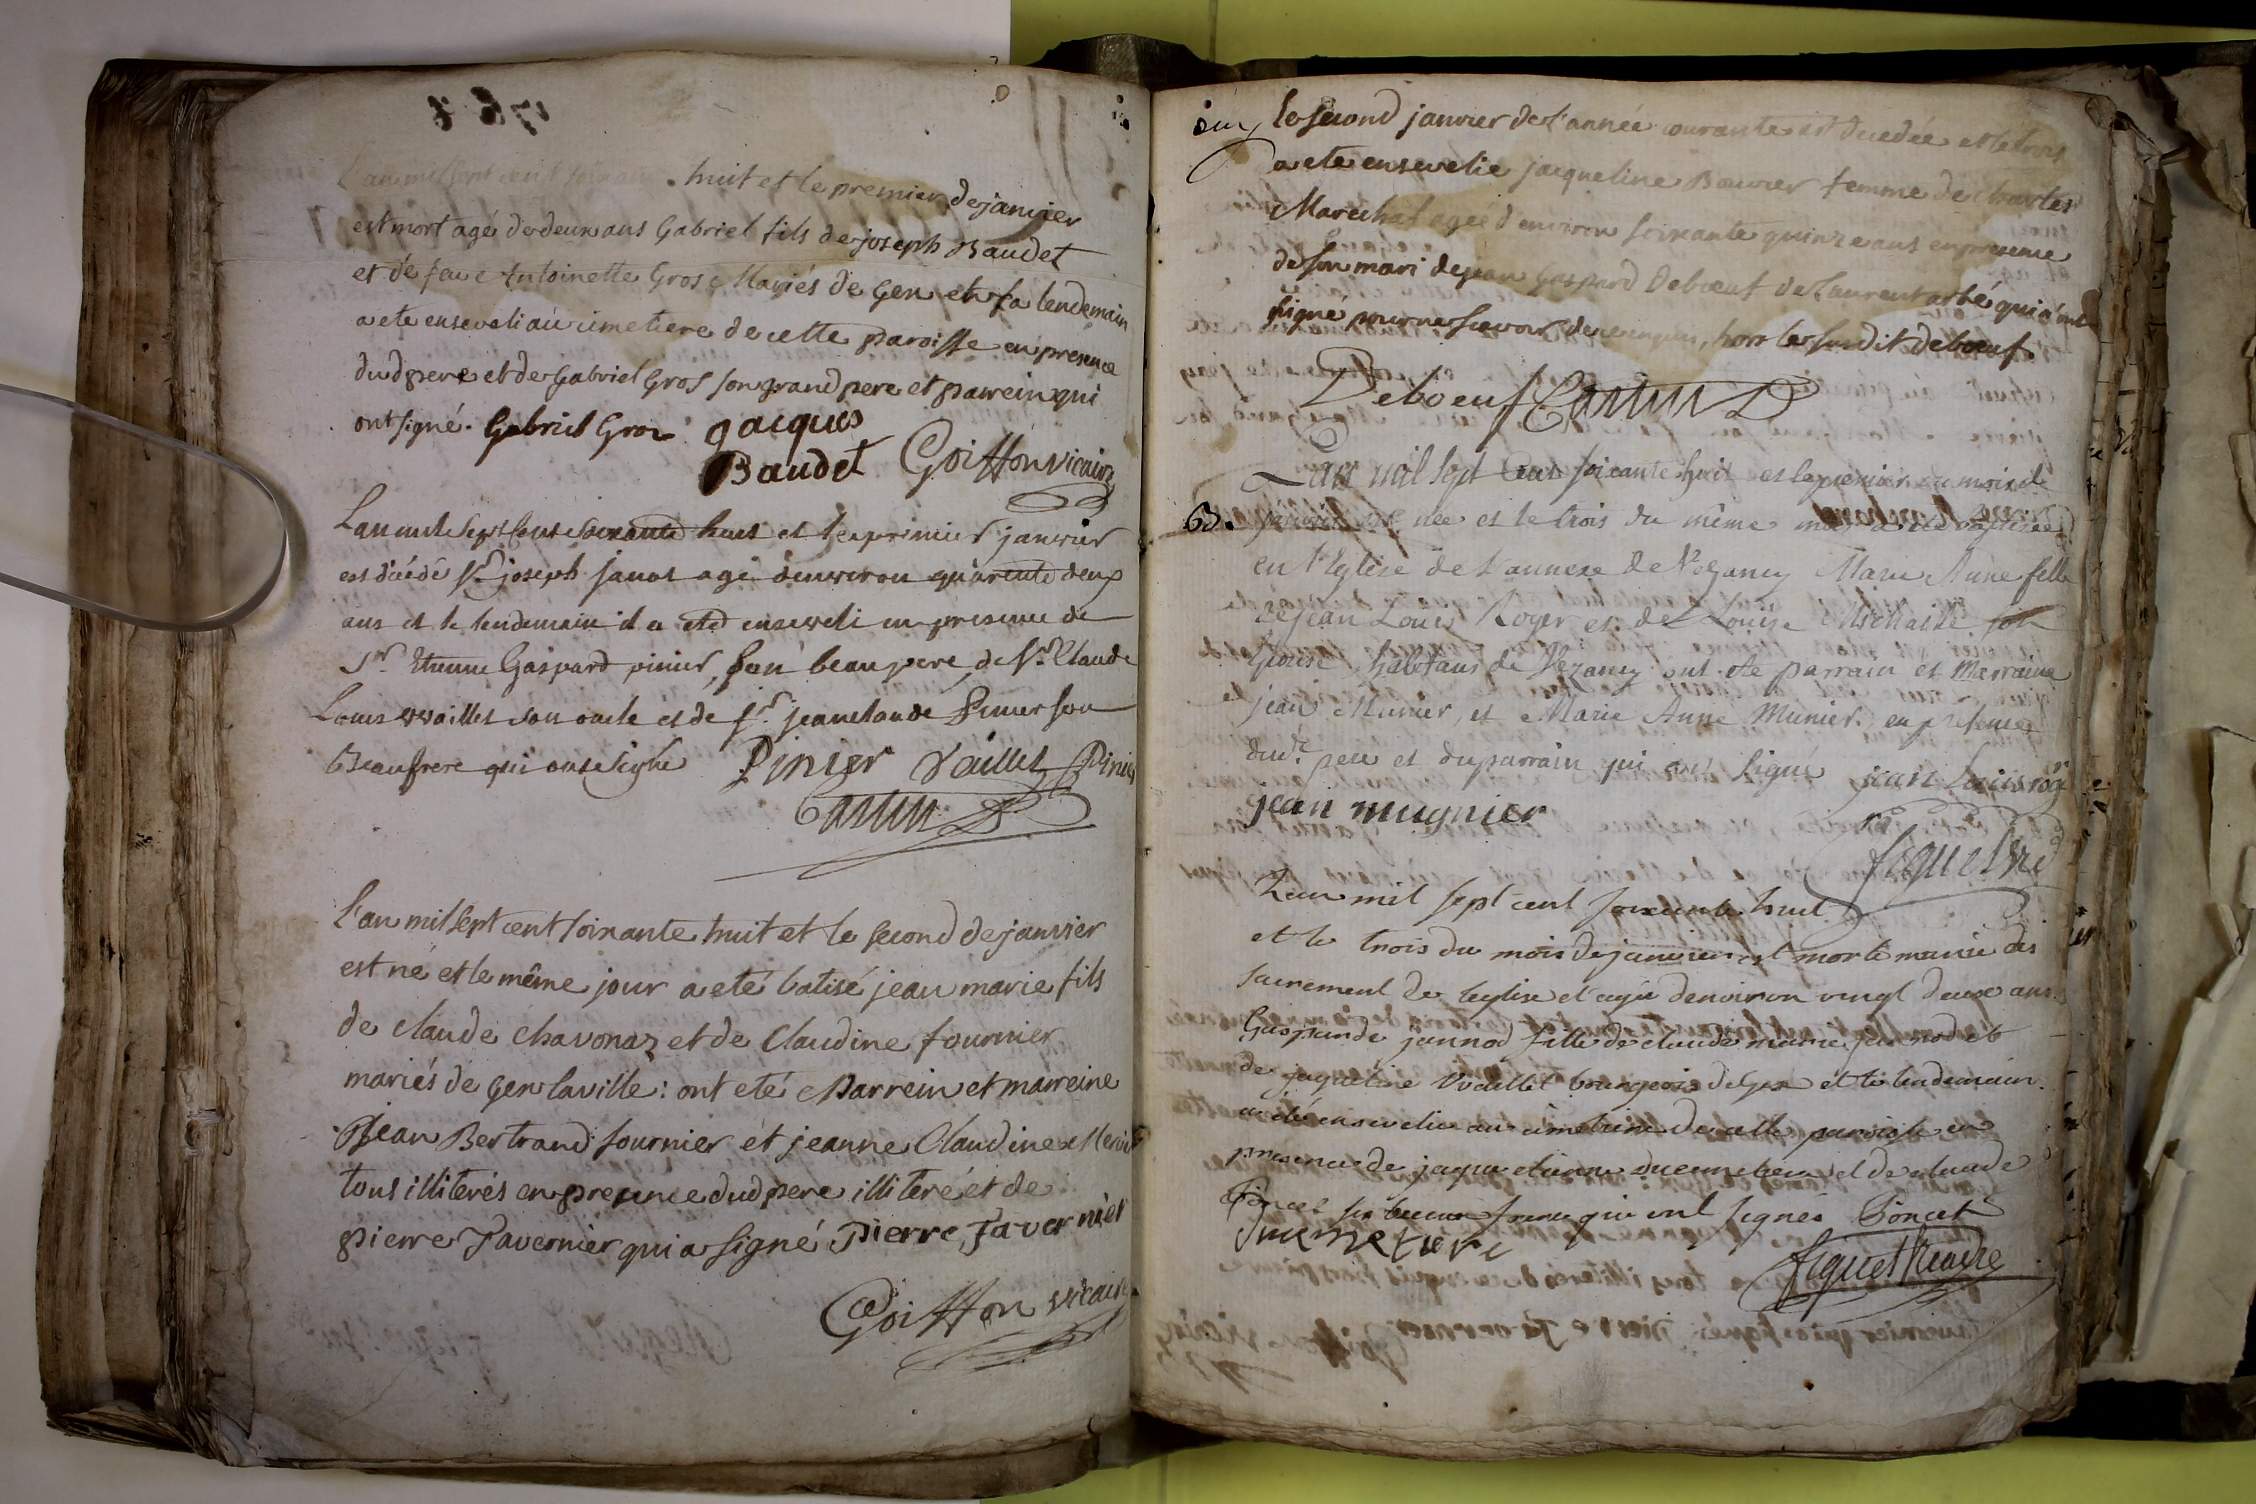 1768
L'an mil sept cent soixante huit et le premier de janvier
est mort agé de deux ans Gabriel fils de joseph Baudet
et de feue Antoinette Gros Mariés de Gex et le lendemain
a ete enseveli au cimetiere de cette paroisse en presence
dud pere et de Gabriel Gros son grand pere et parrein qui
ont signé. Gabriel Gros jacques
Baudet Goiffon vicaire
L'an mil sept cent soixante huit et le premier janvier
est décédé Sr joseph janot agé d'environ quarente deux
ans et le lendemain il a eté enseveli en presence de
Sr Etienne Gaspard pinier, son beau pere, de Sr Claude
Louis vvaillet son oncle et de Sr jeanclaude Pinier son
Beaufrere qui ont signé Pinier Vaillet Pinier
L'an mil sept cent soixante huit et le second de janvier
est né et le même jour a eté batisé jean marie fils
de claude chavonaz et de Claudine fournier
mariés de Gex la ville: ont eté Parrein et marreine
Jean Bertrand fournier et jeanne Claudine
tous illiterés en presence dud pere illiteré et de
pierre Tavernier qui a signé Pierre Tavernier
Goiffon vicaire
le second janvier de l'année courante est decedée et le trois
a ete ensevelie jacqueline Bouvier femme de charles
Marechal ageé d'environ soixante quinze ans en presence
de son mari de jean Gaspard Deboeuf de Laurent qui n'ont
signé pour ne scavoir de ce enquis, hors le susdit deboeuf
Deboeuf
L'an mil sept cent soixante huit et le premier du mois de
63. janvier est née et le trois du même mois a eté baptisée
en l'Eglise de l'annexe de Vezancy Marie Anne fille
de jean Louis Roger et de Louise son
épouse habitans de Vezancy ont eté parrain et marraine
jean Munier, et Marie Anne Munier en presence
dudt. pere et du parrain qui ont signé jean louis roger
jean mugnier
fiquet vre
L'an mil sept cent soixante huit
et le trois du mois de janvier est morte munie des
sacrement de l'eglise et agée denviron vingt deux ans
Gasparde jannod fille de claude marie jannod et
de jaqueline Vvaillet bourgeois de Gex et le lendemain
a été ensevelie au cimetiere de cette paroisse en
presence de jaque etienne ducimetiere et de claude
Poncet son beau frere qui ont signés Poncet
Ducimetiere
fiquet vicaire